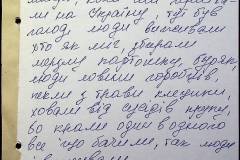 ли на Україну, тут був
голод, люди виживали
хто як міг, збирали
мерзлу картошку, буряк,
люди ловили горобців,
пекли з трави млинці,
ховали від сусідів крупу,
бо крали один в одного
все що бачили, так люди